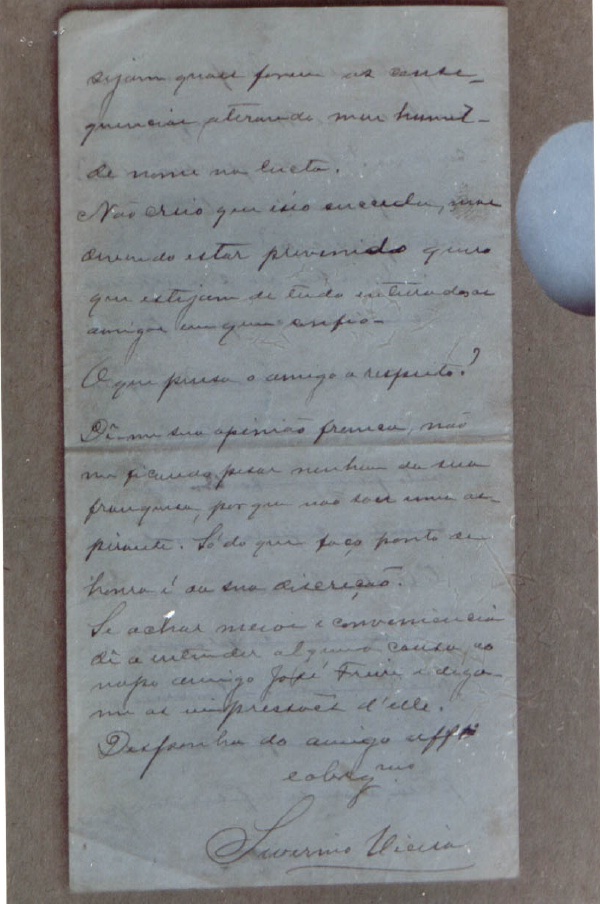 sejam quaes forem as conse-
quencias, atirando meu humil-
de nome na lucta.
Não creio que isso succeda, mas
devendo estar prevenido quero
que estejam de tudo inteirados os
amigos em quem confio.
O que pensa o amigo a respeito?
Dê-me sua opinião franca, não
me ficando pesar nenhum da sua
franquesa, por que não sou um as-
pirante. Só do que faço ponto de
honra é da sua discreção.
Se achar nisso conveniencia
dê a entender alguma cousa ao
nosso amigo José Freire e diga-
me as impressões d'elle.
Desponha do amigo affº
e obrgmo
Severino Vieira